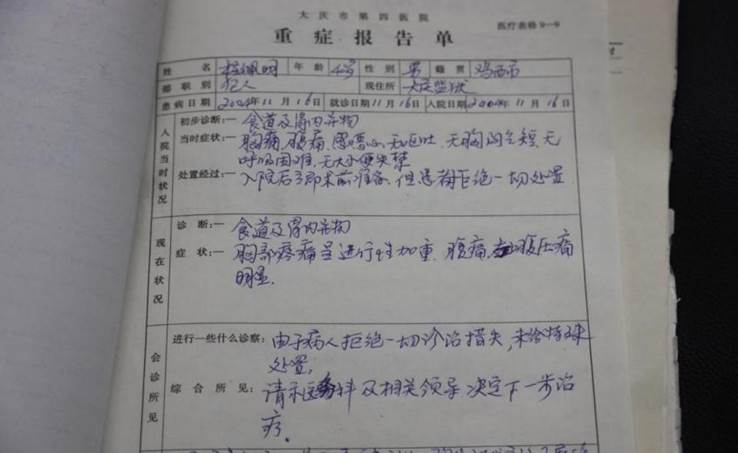 大庆市第四医院
医疗表格9—9
重症报告单
姓名 佩明 年龄 4 性别 男 籍贯 鸡西市
部职别 犯人 现住所 大庆监狱
患病日期 2004年11月16日 就诊日 11月16日 入院日期 2004年11月16日
入院当时状况
初步诊断:— 食道及胃内异物
当时症状:— 胸痛、腹痛、恶心、无呕吐、无胸闷气短、无
呼吸困难、无大小便失禁
处置经过:— 入院后予即术前准备,但患者拒绝一切处置
现在状况
诊断:— 食道及胃内异物
症状:— 胸部疼痛呈进行性加重、腹痛、腹压痛
明显.
会诊所见
进行一些什么诊察: 由于病人拒绝一切诊治措失,未给特殊
处置,
综合所见: 请示医务科及相关领导决定下一步治
疗。